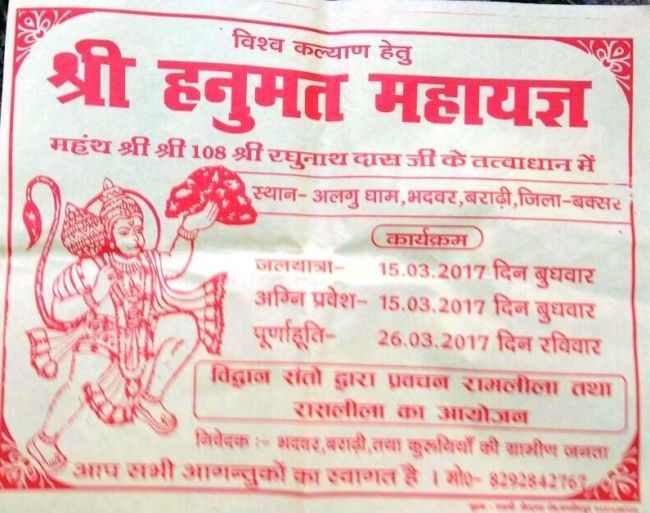 विश्व कल्याण हेतु
श्री हनुमत महायज्ञ
महंथ श्री श्री 108 श्री रघुनाथ दास जी के तत्वाधान में
स्थान- अलगु धाम,भदवर,बराढ़ी,जिला-बक्सर
कार्यक्रम
जलयात्रा- 15.03.2017 दिन बुधवार
अग्नि प्रवेश- 15.03.2017 दिन बुधवार
पूर्णाहूति- 26.03.2017 दिन रविवार
विद्वान संतो द्वारा प्रवचन रामलीला तथा
रासलीला का आयोजन
निवेदक :- भदवर,बराढ़ी,तथा कुरूथियाँ की ग्रामीण जनता
आप सभी आगन्तुकों का स्वागत है । मो0- 8292842767